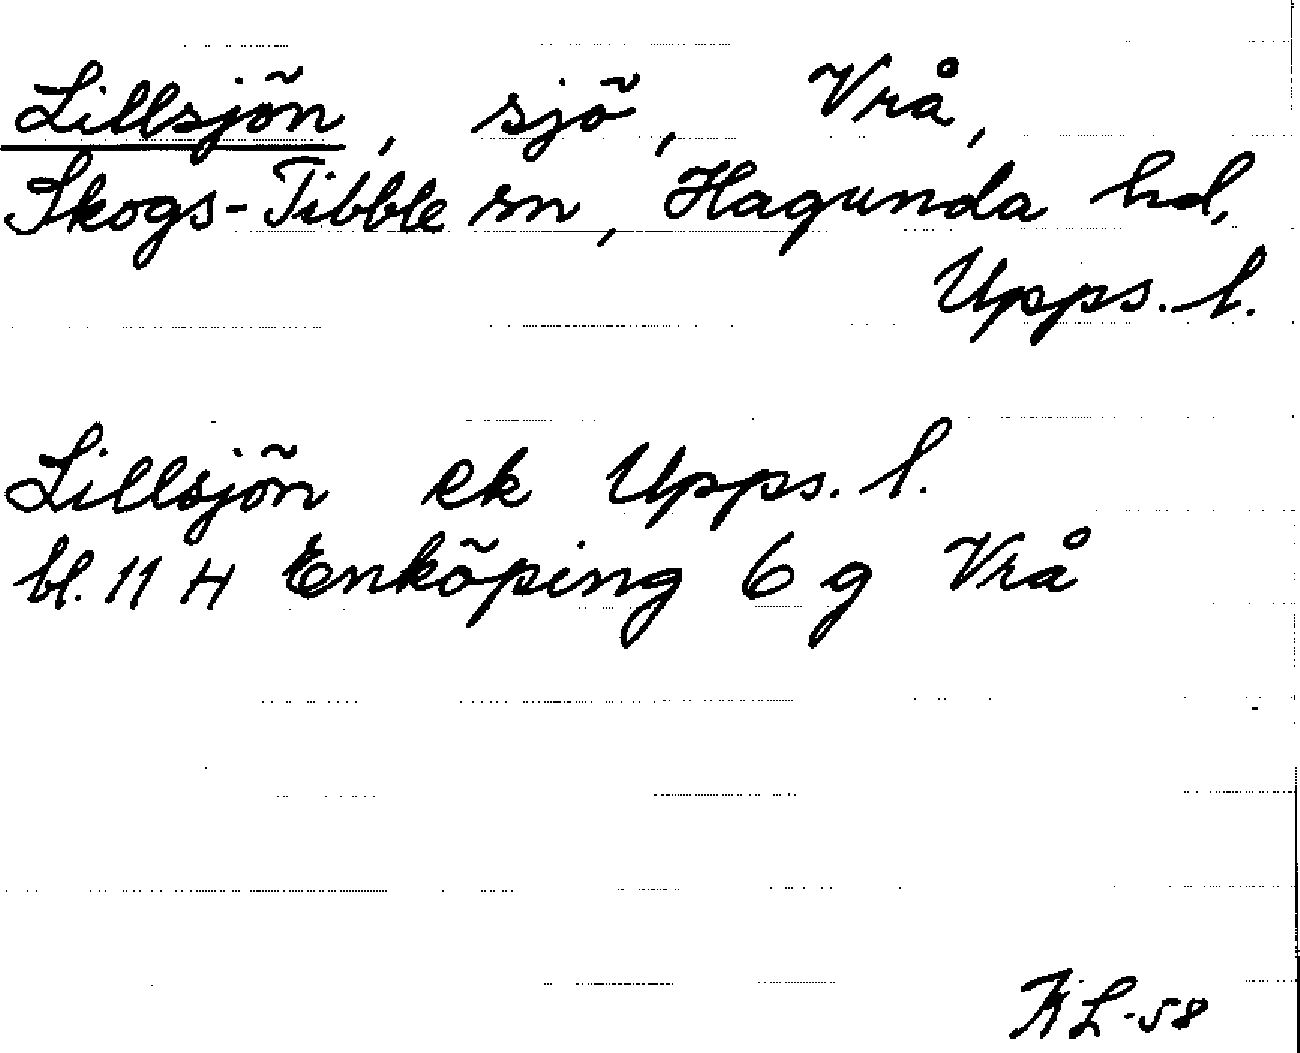 Lillsjön, sjö, Vrå,
Skogs-Tibble sn, Hagunda hd,
Upps. l.
Lillsjön ek Upps. l.
bl. 11 H Enköping 6 g Vrå
KL-58